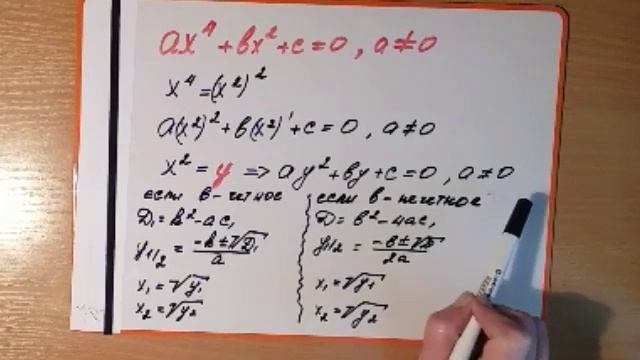 ax⁴ + bx² + c = 0, a ≠ 0
x⁴ = (x²)²
a(x²)² + b(x²)¹ + c = 0, a ≠ 0
x² = y ⇒ ay² + by + c = 0, a ≠ 0
если b - четное
D₁ = k² - ac,
y₁/₂ = (-k ± √D₁)/a
x₁ = √y₁
x₂ = √y₂
если b - нечетное
D = b² - 4ac,
y₁/₂ = (-b ± √D)/2a
x₁ = √y₁
x₂ = √y₂